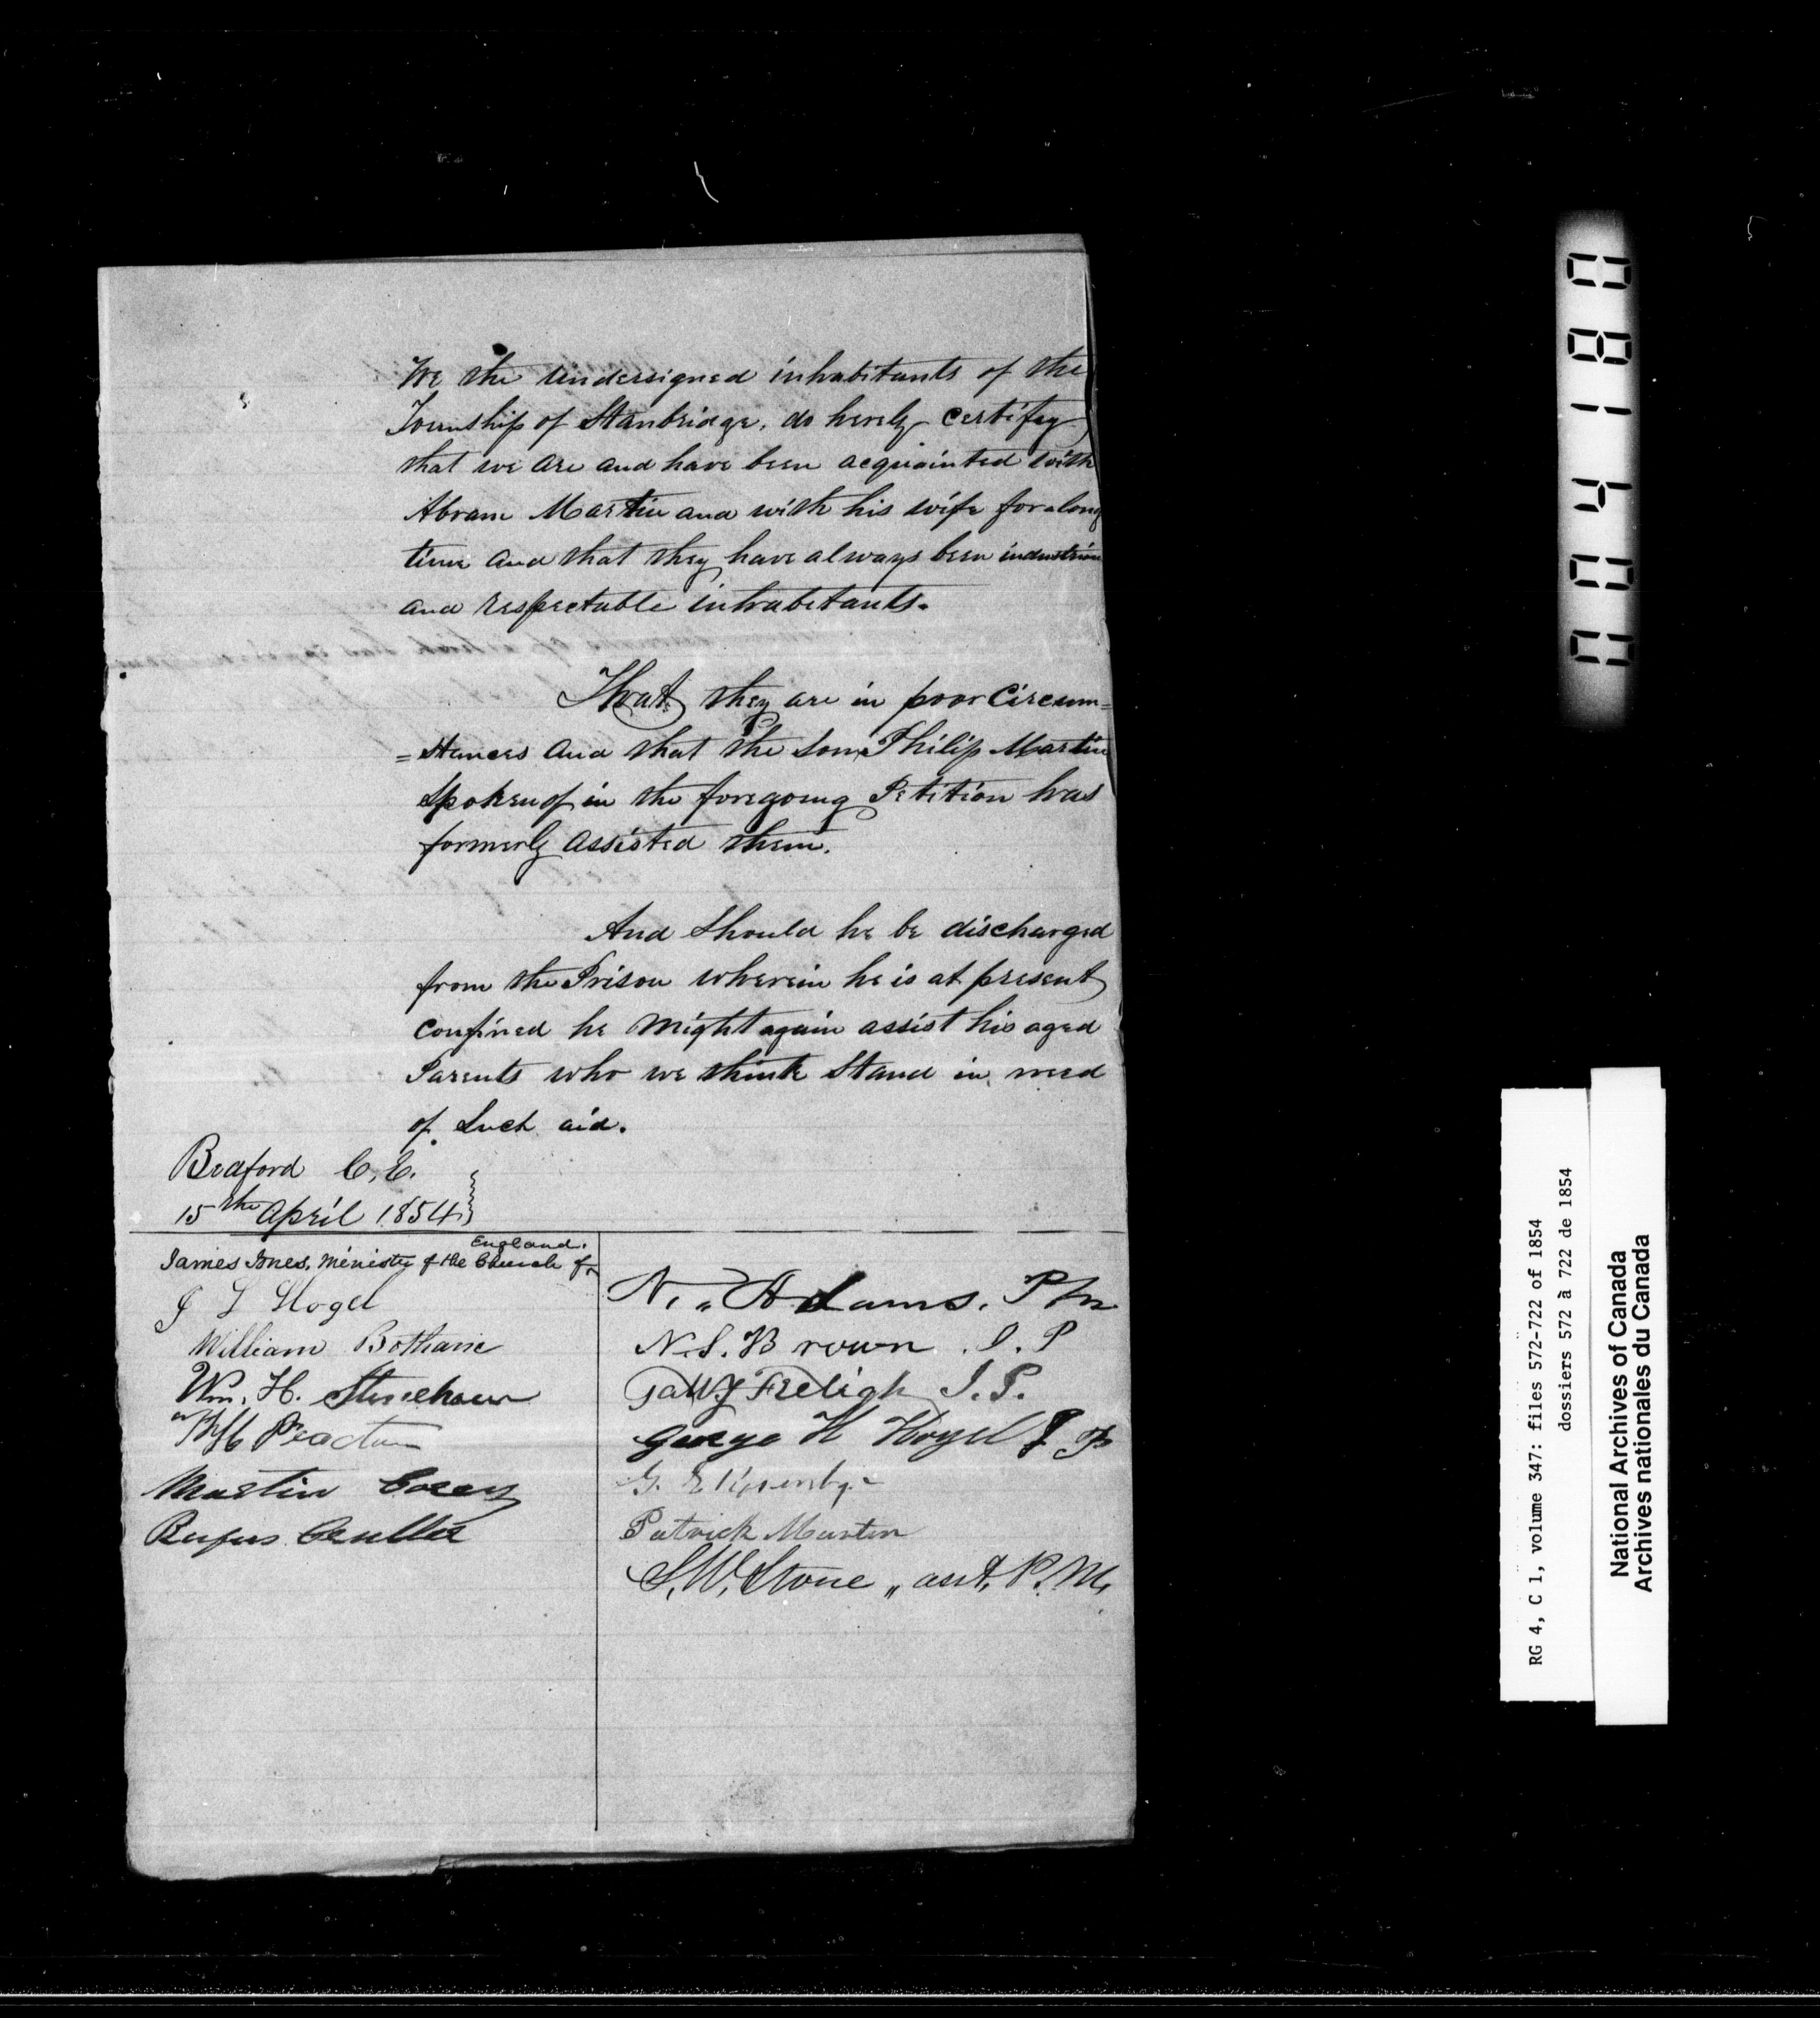 We the undersigned inhabitants of the
Township of Stanbridge, do hereby certify
that we are and have been acquainted with
Abram Martin and with his wife for a long
time and that they have always been industrious
and respectable inhabitants.
That they are in poor Circum=
=stances and that the son Philip Martin
spoken of in the foregoing Petition has
formerly assisted them.
And should he be discharged
from the Prison wherein he is at present
confined he might again assist his aged
Parents who we think stand in need
of such aid.
Bedford C. E.
15th April 1854
James Jones, Minister of the Church of England.
J L Hogel
William Bothame
Wm. H. Stonehouse
Martin Corey
Rufus
N. Adams. P M
N. S. Brown J. P
Galloway Freligh J. P.
George H Hogel J P
Patrick Martin
S. W. Stone „ asst. P. M.
0 0 4 1 8 0
RG 4, C 1, volume 347: files 572-722 of 1854
dossiers 572 à 722 de 1854
National Archives of Canada
Archives nationales du Canada